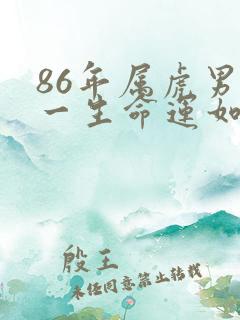 86年属虎男
一生命运如
殷王
未经同意禁止转载